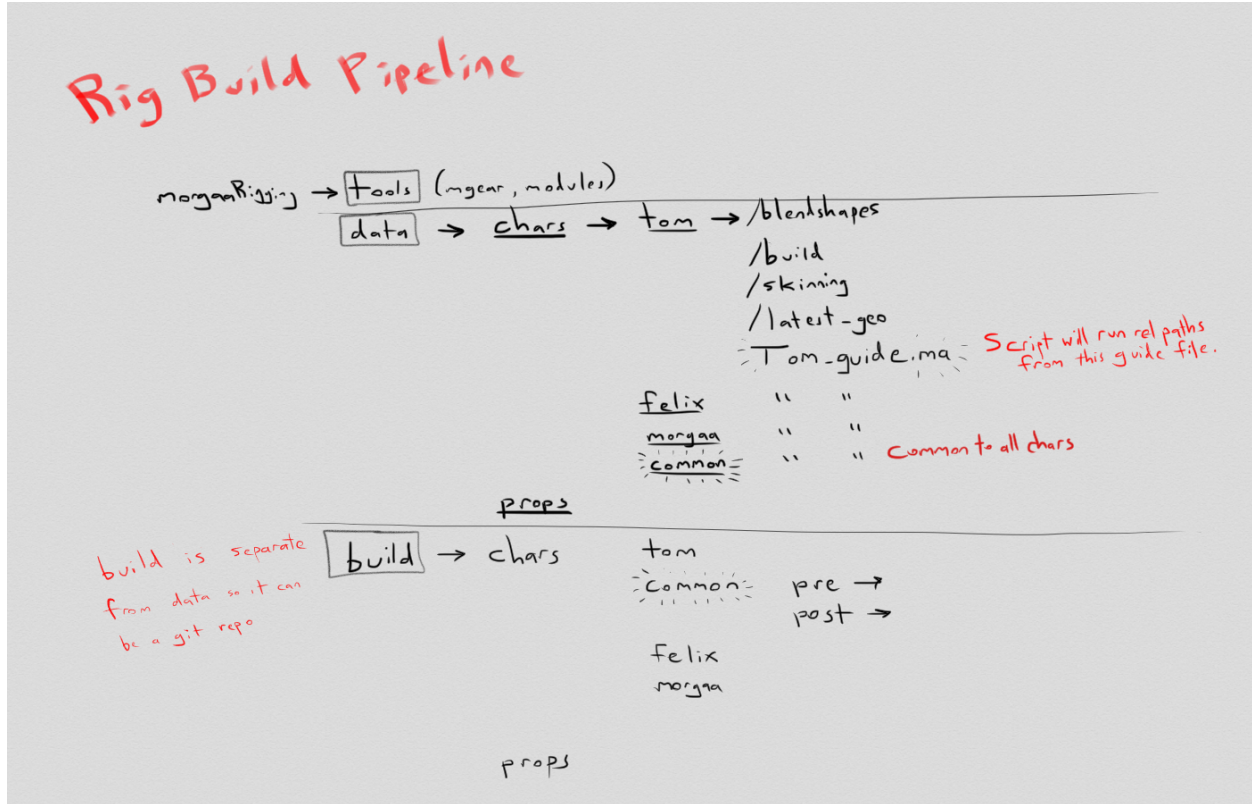 Rig Build Pipeline
morgaaRigging → tools (mgear, modules)
data → chars → tom → /blendshapes
/build
/skinning
/latest_geo
Tom_guide.ma
Script will run rel paths
from this guide file.
felix " "
morgaa " "
common " " Common to all chars
props
build is separate
from data so it can
be a git repo
build → chars tom
common pre →
post →
felix
morgaa
props